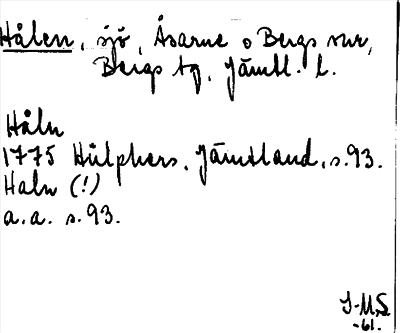 Hålen, sjö, Åsarne o Bergs snr,
Bergs tg, Jämtl. l.
Håln
1775 Hülphers, Jämtland, s. 93.
Haln (!)
a.a. s. 93.
J-M.S.
-61.